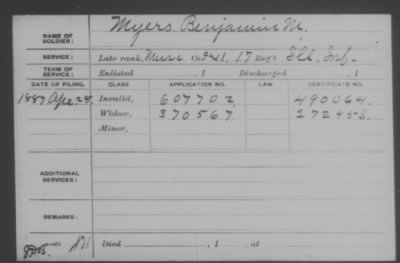 NAME OF SOLDIER: Myers, Benjamin M.
SERVICE: Late rank, Musc Co. F&H, 17 Reg't Ill. Inf.
TERM OF SERVICE: Enlisted , 1 Discharged , 1
DATE OF FILING. CLASS APPLICATION NO. LAW CERTIFICATE NO.
1887 Apr 28. Invalid, 607702 490064.
Widow, 370567 272458.
Minor,
ADDITIONAL SERVICES:
REMARKS:
Died , 1 , at